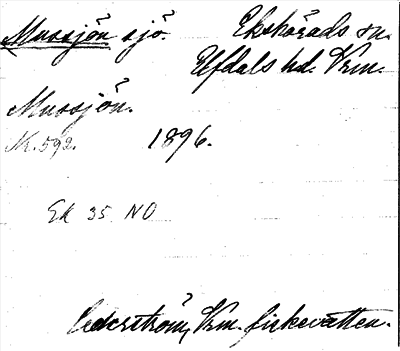 Mussjön sjö. Ekshärads sn.
Elfdals hd. Vrm.
Mussjön.
Nr. 592. 1896.
EK 35 NO
Cederström, Vrm. fiskevatten.